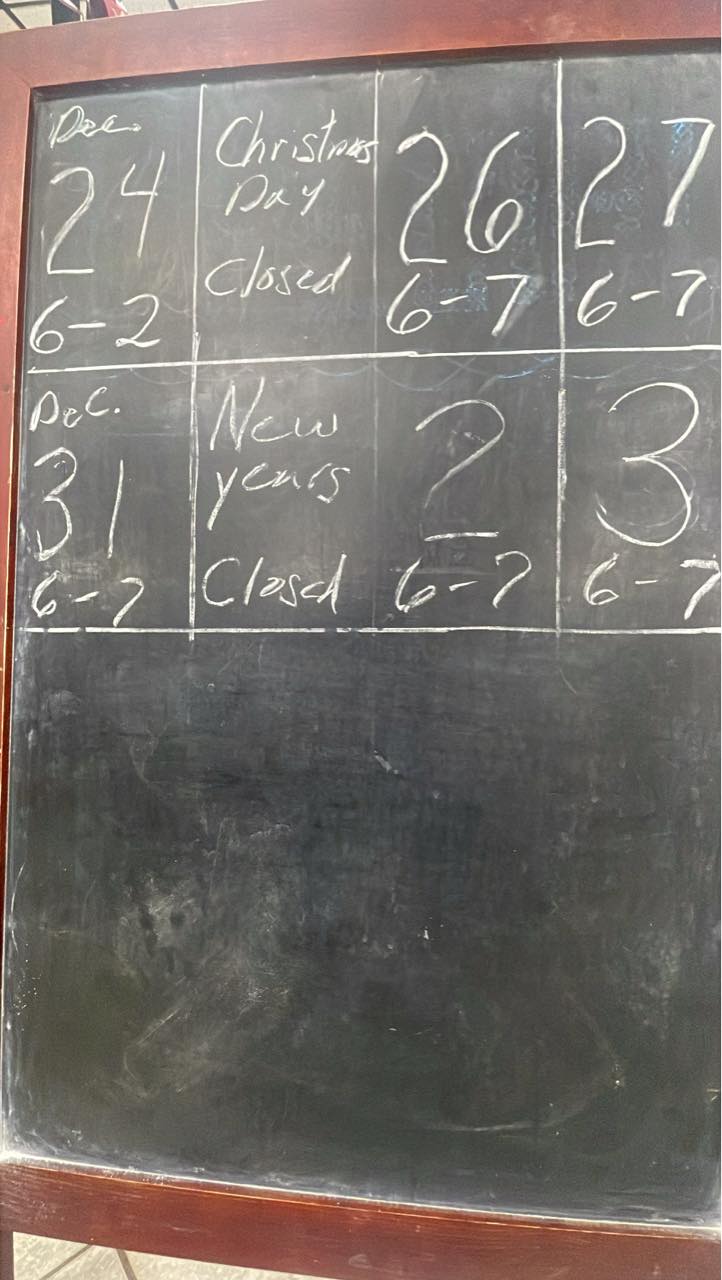 Dec.
24
6-2
Christmas
Day
Closed
26
6-7
27
6-7
Dec.
31
6-7
New
years
Closed
2
6-7
3
6-7